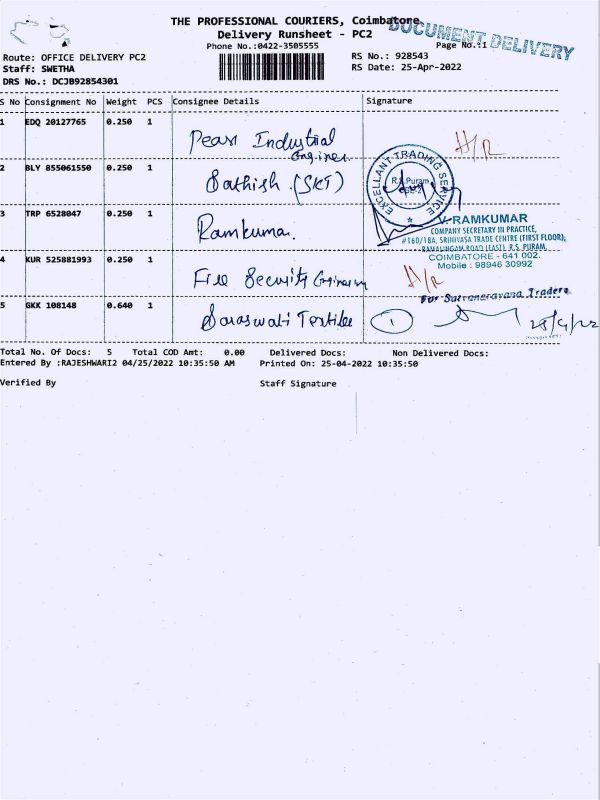 THE PROFESSIONAL COURIERS, Coimbatore
DOCUMENT DELIVERY
Delivery Runsheet - PC2
Phone No.:0422-3505555
Page No.:1
Route: OFFICE DELIVERY PC2
RS No.: 928543
Staff: SWETHA
RS Date: 25-Apr-2022
DRS No.: DCJB92854301
S No Consignment No Weight PCS Consignee Details Signature
1 EDQ 20127765 0.250 1
Pearl Industrial H/R
Engineer
2 BLY 855061550 0.250 1
Sathish (SKT)
EXCELLANT TRADING SERVICE
R.S.Puram
3 TRP 6528047 0.250 1
Ramkumar.
V. RAMKUMAR
COMPANY SECRETARY IN PRACTICE,
#160/18A, SRINIVASA TRADE CENTRE (FIRST FLOOR),
RAMALINGAM ROAD (EAST), R.S. PURAM,
COIMBATORE - 641 002.
Mobile : 98946 30992
4 KUR 525881993 0.250 1
Fire Security Engineering H/R
For Suryanarayana Traders
5 GKK 108148 0.640 1
Saraswati Textiles 1 25/4/22
Total No. Of Docs: 5 Total COD Amt: 0.00 Delivered Docs: Non Delivered Docs:
Entered By :RAJESHWARI2 04/25/2022 10:35:50 AM Printed On: 25-04-2022 10:35:50
Verified By Staff Signature